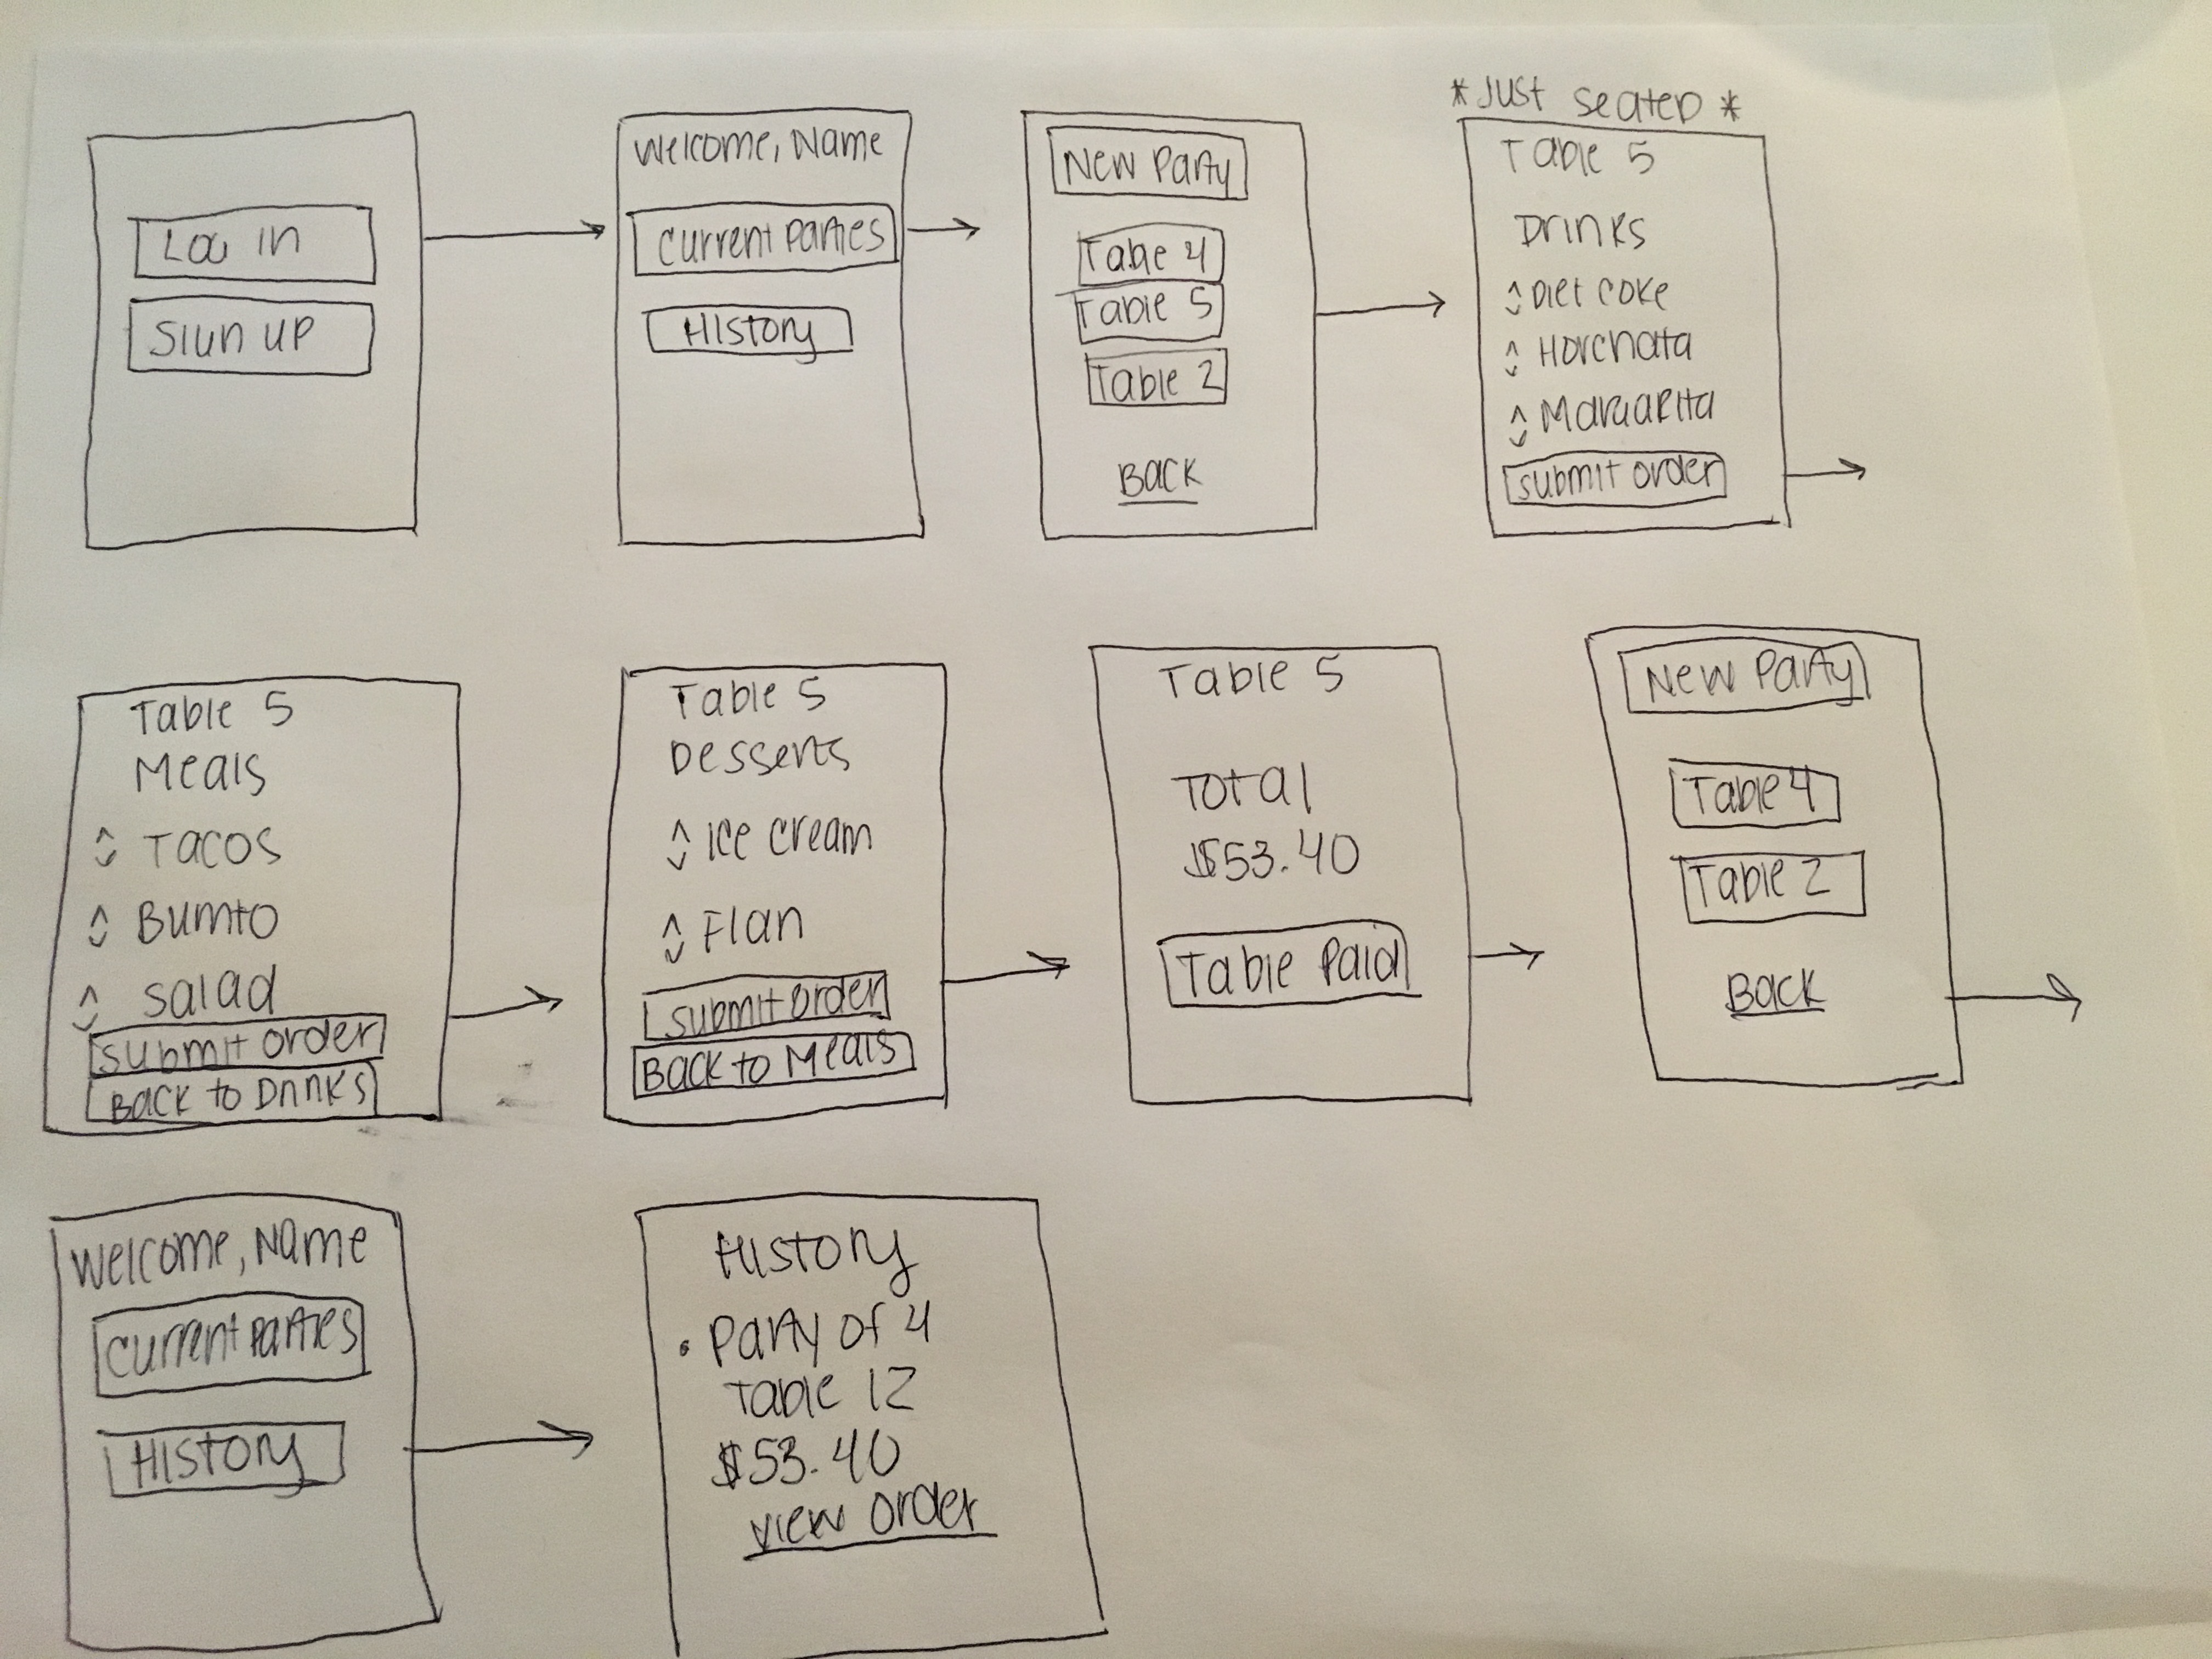 Log in
Sign up
Welcome, Name
Current Parties
History
New Party
Table 4
Table 5
Table 2
Back
*Just seated*
Table 5
Drinks
Diet coke
Horchata
Margarita
submit order
Table 5
Meals
Tacos
Burrito
Salad
submit order
Back to Drinks
Table 5
Desserts
Ice cream
Flan
submit order
Back to Meals
Table 5
Total
$53.40
Table Paid
New Party
Table 4
Table 2
Back
Welcome, Name
Current Parties
History
History
• Party of 4
Table 12
$53.40
view order